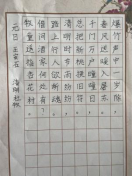 爆竹声中一岁除，
春风送暖入屠苏。
千门万户曈曈日，
总把新桃换旧符。
清明时节雨纷纷，
路上行人欲断魂。
借问酒家何处有，
牧童遥指杏花村。
元日 王安石 清明 杜牧